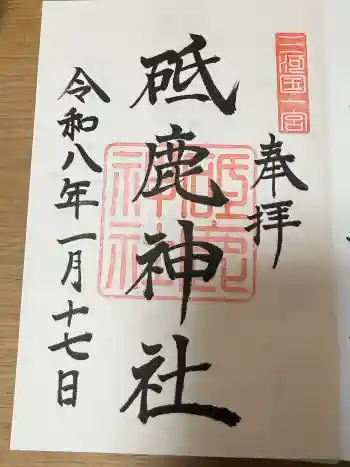 三河国一宮
奉拝
砥鹿神社
砥鹿
神社
令和八年一月十七日